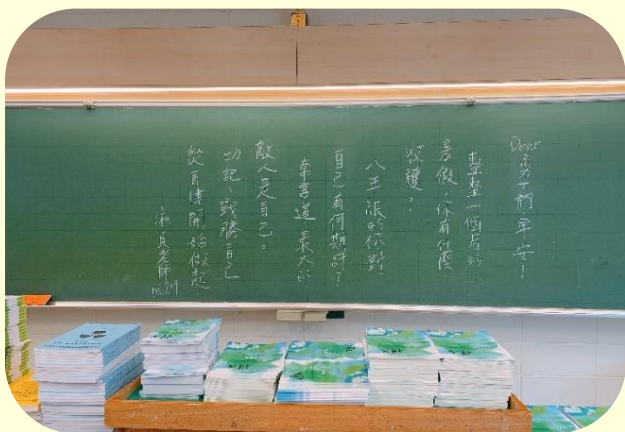 Dear 勇士們，早安！
整整一個月的
暑假，你有什麼
收穫？
八年級的你對
自己有何期許？
常言道 最大的
敵人是自己。
切記，戰勝自己，
從自律開始做起。
老師